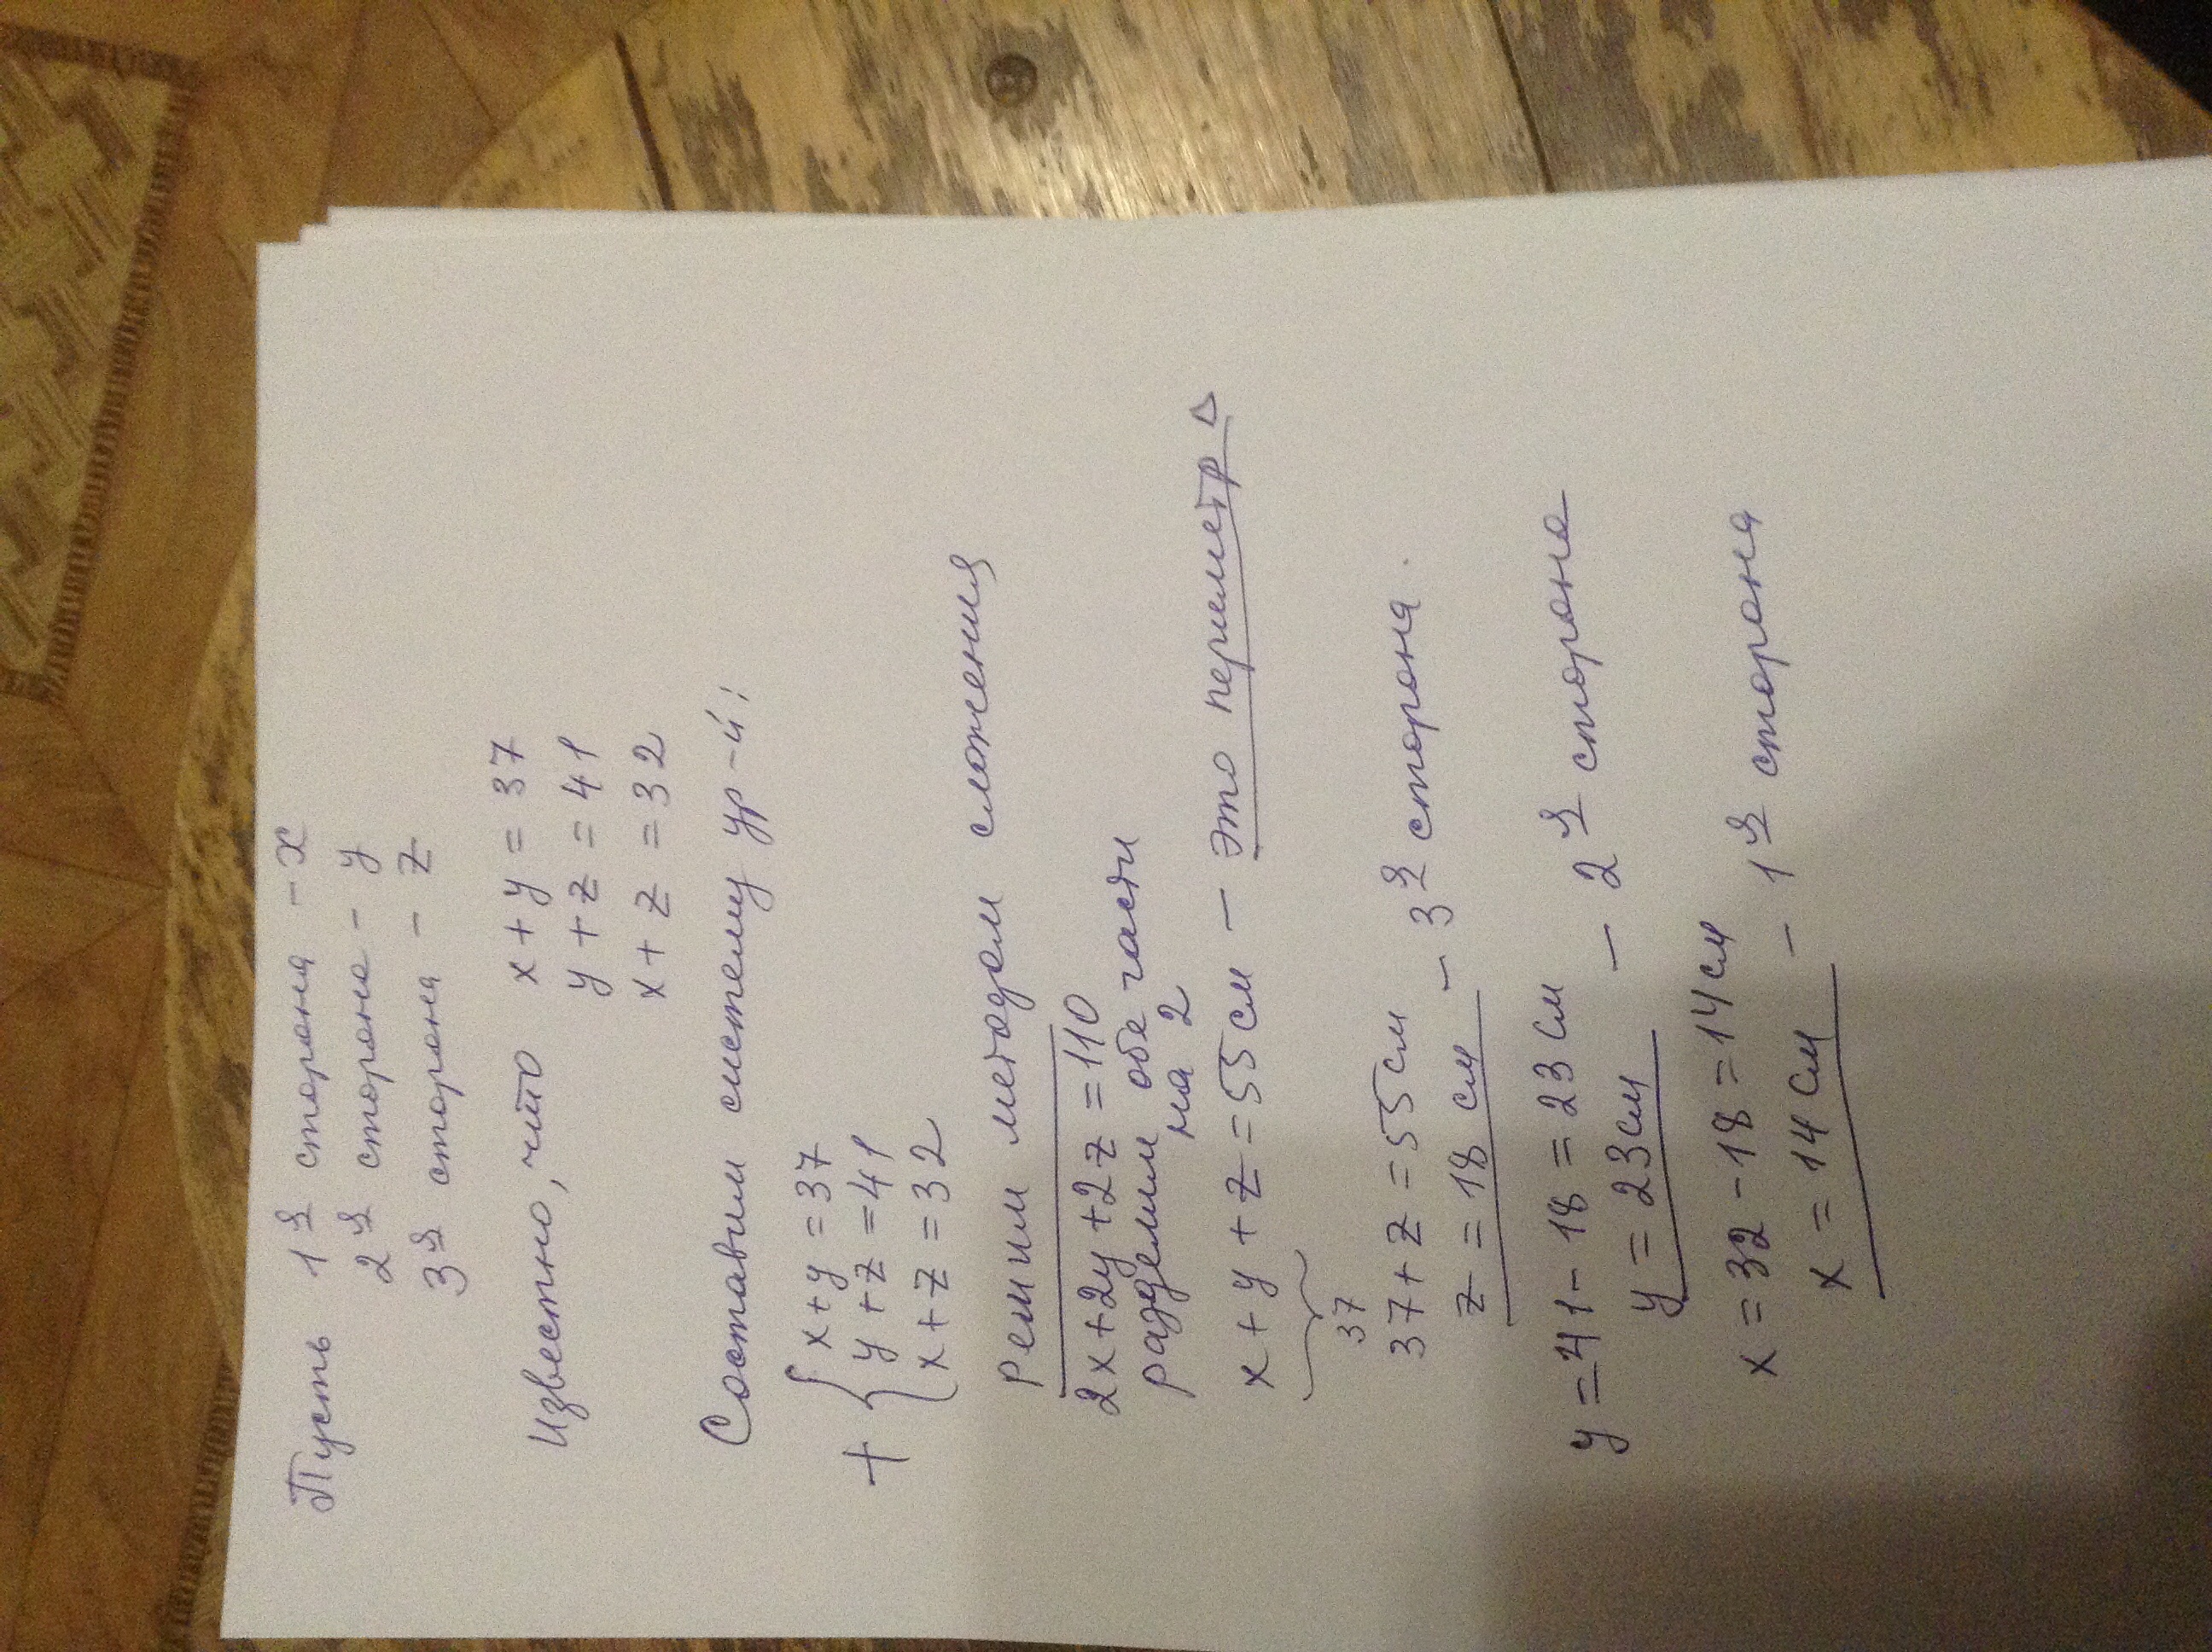 Пусть 1я сторона - x
2я сторона - y
3я сторона - z
Известно, что x + y = 37
y + z = 41
x + z = 32
Составим систему ур-й:
+ { x + y = 37
y + z = 41
x + z = 32
Решим методом сложения
2x + 2y + 2z = 110
разделим обе части
на 2
x + y + z = 55 см - это периметр △
37
37 + z = 55 см
z = 18 см - 3я сторона.
y = 41 - 18 = 23 см
y = 23 см - 2я сторона
x = 32 - 18 = 14 см
x = 14 см - 1я сторона